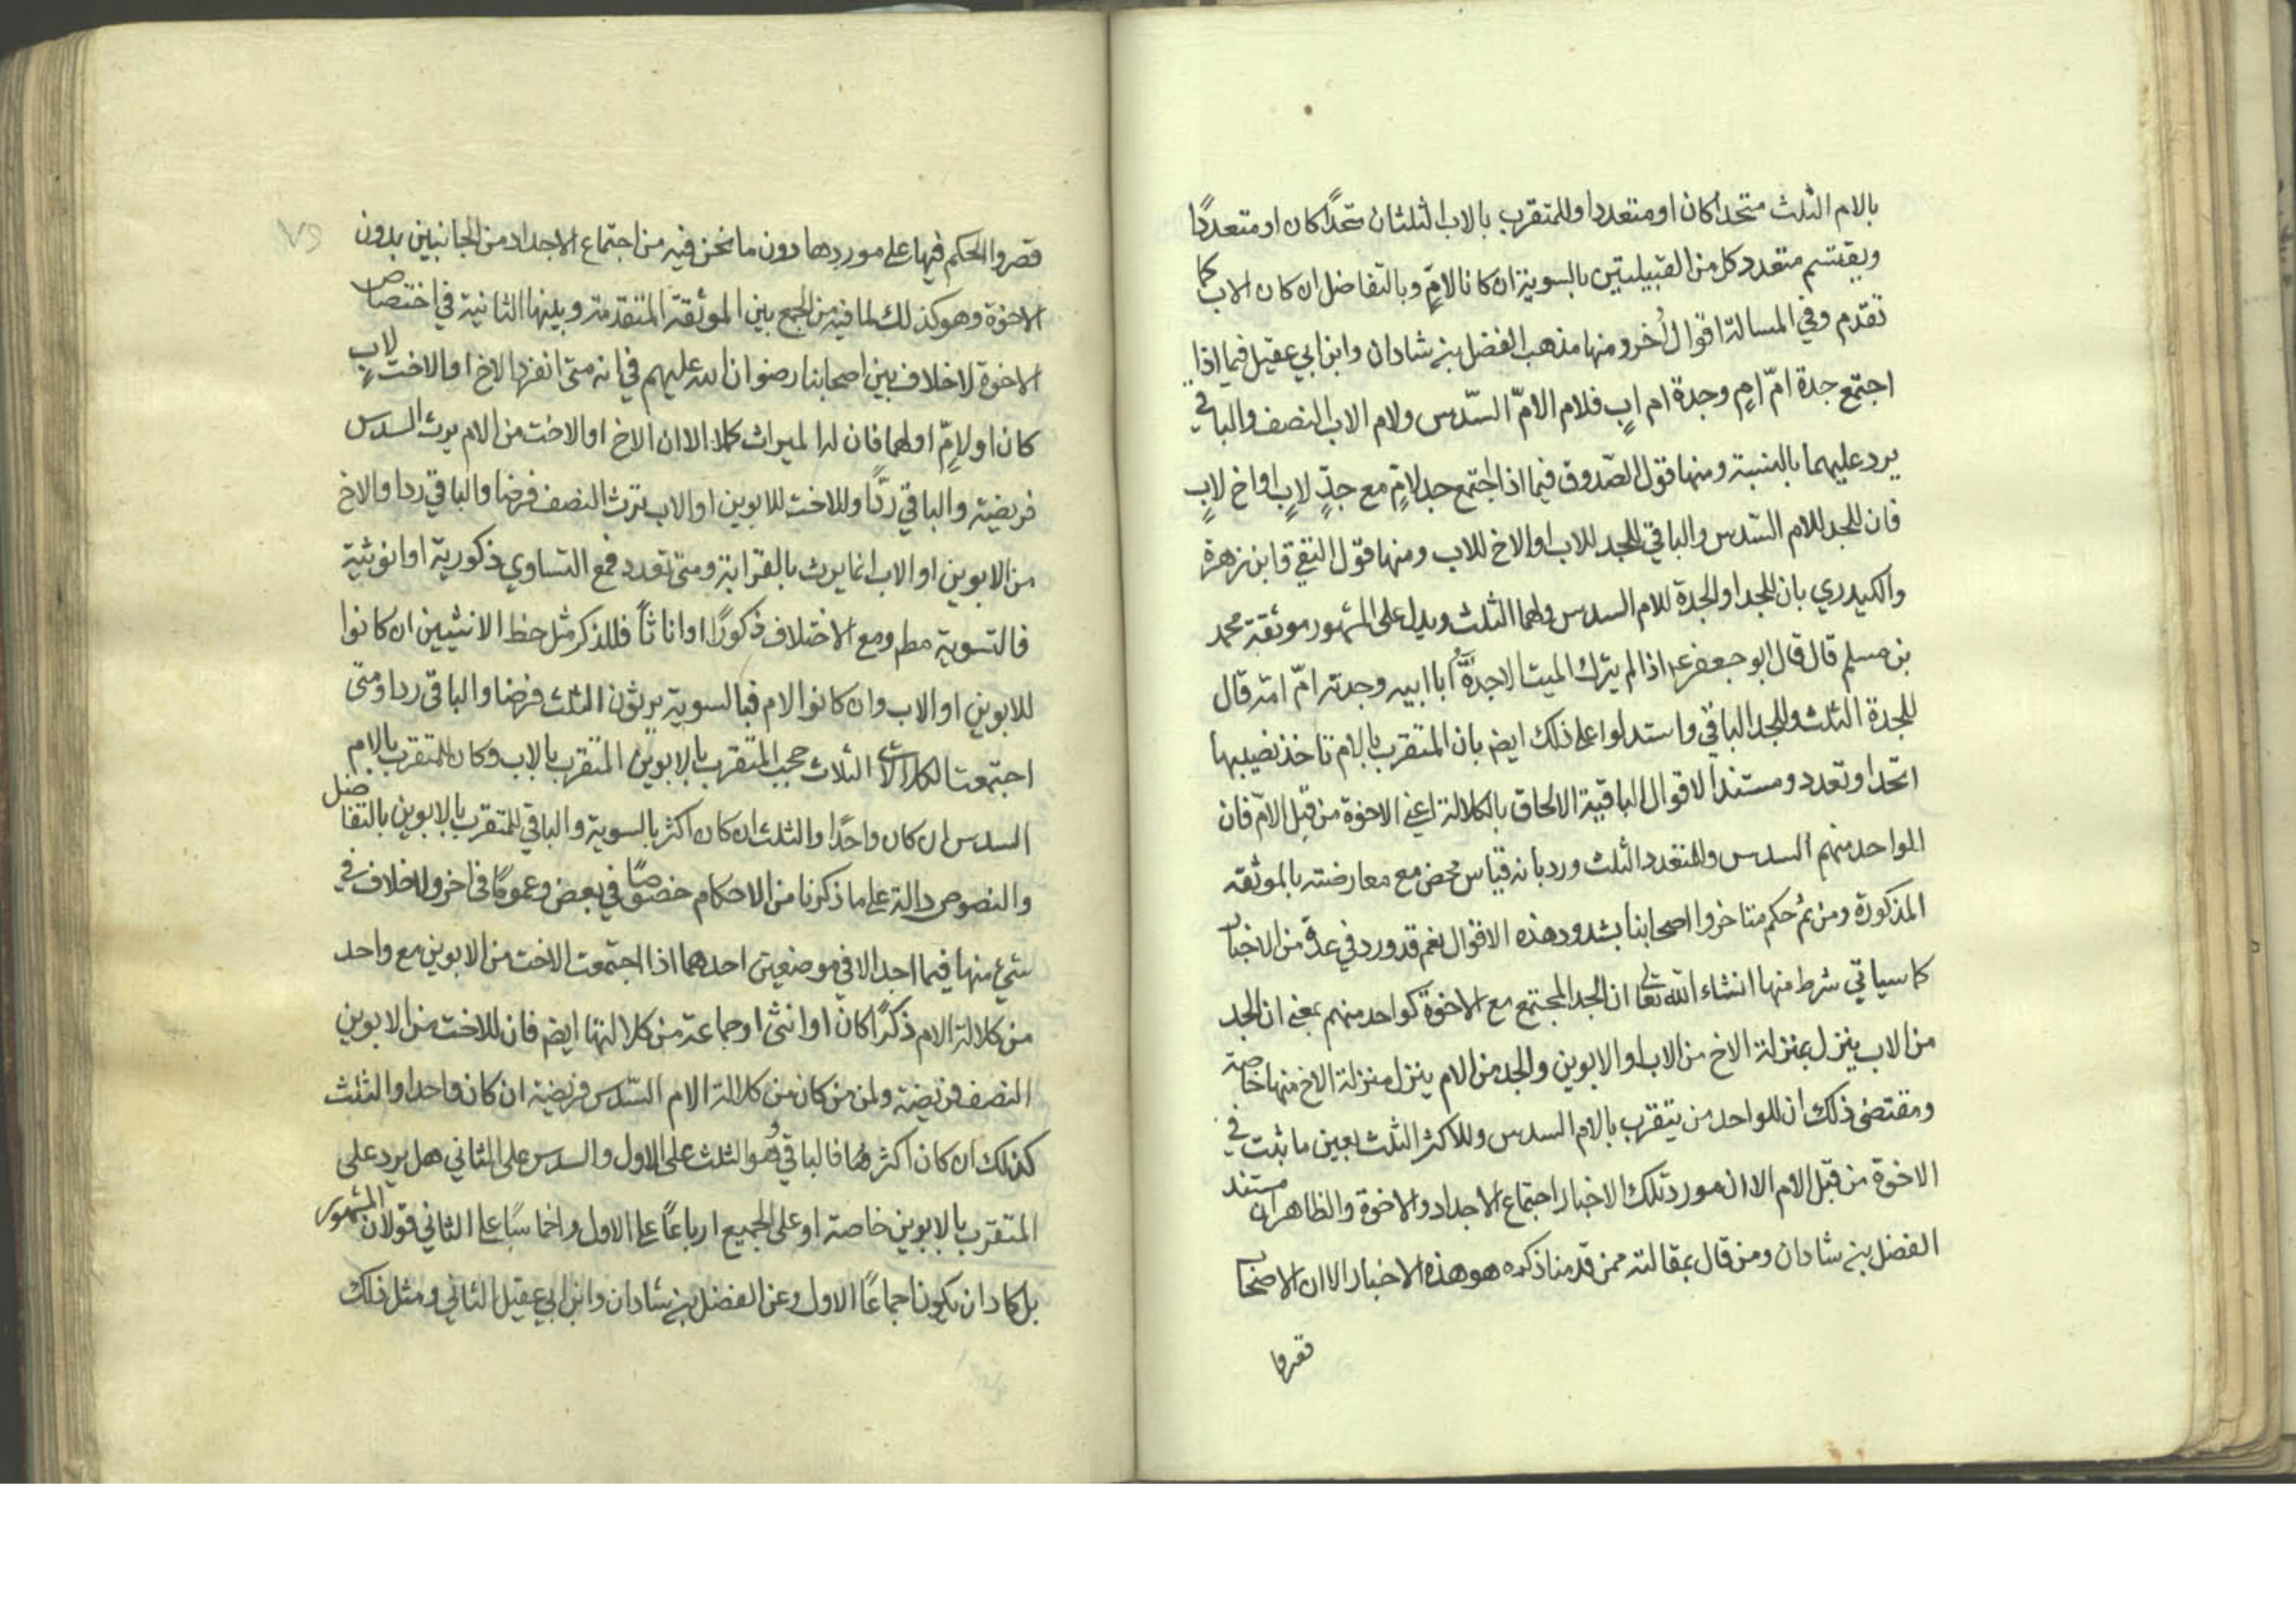 بالام الثلث متحدا كان او متعددا وللمتقرب بالاب الثلثان متحدًا كان او متعددًا
ويقتسم متعدد كل من القبيلتين بالسوية ان كانا لامٍّ وبالتفاضل ان كان لاب كما
تقدم وفي المسالة اقوال أُخر ومنها مذهب الفضل بن شادان وابن ابي عقيل فيما اذا
اجتمع جدة امّ امٍ وجدة ام ابٍ فلام الامّ السّدس ولام الاب النصف والباقي
يرد عليهما بالنسبة ومنها قول الصّدوق فيما اذا اجتمع جد لامٍّ مع جدٍّ لابٍ او اخ لابٍ
فان للجد للام السّدس والباقي للجد للاب او الاخ للاب ومنها قول التقي وابن زهرة
والكيدري بان للجد او الجدة للام السدس ولهما الثلث ويدل على المشهور موثقة محمد
بن مسلم قال قال ابو جعفر ع اذا لم يترك الميت الا جدَّهُ أبا ابيه وجدته امّ امّه قال
للجدة الثلث وللجد الباقي واستدلوا على ذلك ايضا بان المتقرب بالام تاخذ نصيبها
اتحد او تعدد ومستند الاقوال الباقية الالحاق بالكلالة اعني الاخوة من قِبل الامّ فان
للواحد منهم السدس وللمتعدد الثلث ورد بانه قياس محض مع معارضته بالموثقة
المذكورة ومن ثمُ حكم متاخروا اصحابنا بشدود هذه الاقوال نعم قد ورد في عدة من الاخبار
كما سياتي شرط منها انشاء الله تعالى ان الجد المجتمع مع الاخوة كواحد منهم بمعنى ان الجد
من الاب ينزل بمنزلة الاخ من الاب او الابوين والجد من الام ينزل منزلة الاخ منها خاصة
ومقتضى ذلك ان للواحد من يتقرب بالام السدس وللاكثر الثلث بعين ما ثبت في
الاخوة من قبل الام الا ان مورد تلك الاخبار اجتماع الاجداد والاخوة والظاهر ان مستند
الفضل بن شادان ومن قال بمقالته ممن قدمنا ذكره هو هذه الاخبار الا ان الاصحاب
قصروا
قصروا الحكم فيها على موردها دون ما نحن فيه من اجتماع الاجداد من الجانبين بدون
الاخوة وهو كذلك لما فيه من الجمع بين الموثقة المتقدمة وبينها الثانية في اختصاص
الاخوة لا خلاف بين اصحابنا رضوان الله عليهم في انه متى انفرد الاخ او الاخت لابٍ
كان او لامٍّ او لهما فان له الميراث كملا الا ان الاخ او الاخت من الام يرث السدس
فريضية والباقي ردًّا وللاخت للابوين او الاب ترث النصف فرضا والباقي ردا والاخ
من الابوين او الاب انما يرث بالقرابة ومتى تعدد فمع التساوي ذكورية او انوثية
فالتسوية مطم ومع الاختلاف ذكورًا او اناثاً فللذكر مثل حظ الانثيين ان كانوا
للابوين او الاب وان كانوا لام فبالسوية يرثون الثلث فرضا والباقي ردا ومتى
اجتمعت الكلالات الثلاث حجب المتقرب بالابوين المتقرب بالاب وكان للمتقرب بالام
السدس ان كان واحدًا والثلث ان كان اكثر بالسوية والباقي للمتقرب بالابوين بالتفاضل
والنصوص دالة على ما ذكرنا من الاحكام خصوصًا في بعض وعمومًا في اخر ولا خلاف في
شيء منها فيما اجد الا في موضعين احدهما اذا اجتمعت الاخت من الابوين مع واحد
من كلالة الام ذكرًا كان او انثى او جماعة من كلالتها ايضا فان للاخت من الابوين
النصف فريضة ولمن من كان من كلالة الام السّدس فريضية ان كان واحدا والثلث
كذلك ان كان اكثر فالباقي وهو الثلث على الاول والسدس على الثاني هل يرد على
المتقرب بالابوين خاصة او على الجميع ارباعًا على الاول واخماسًا على الثاني قولان المشهور
بل كاد ان يكون اجماعًا الاول وعن الفضل بن شادان وابن ابي عقيل الثاني ومثل ذلك